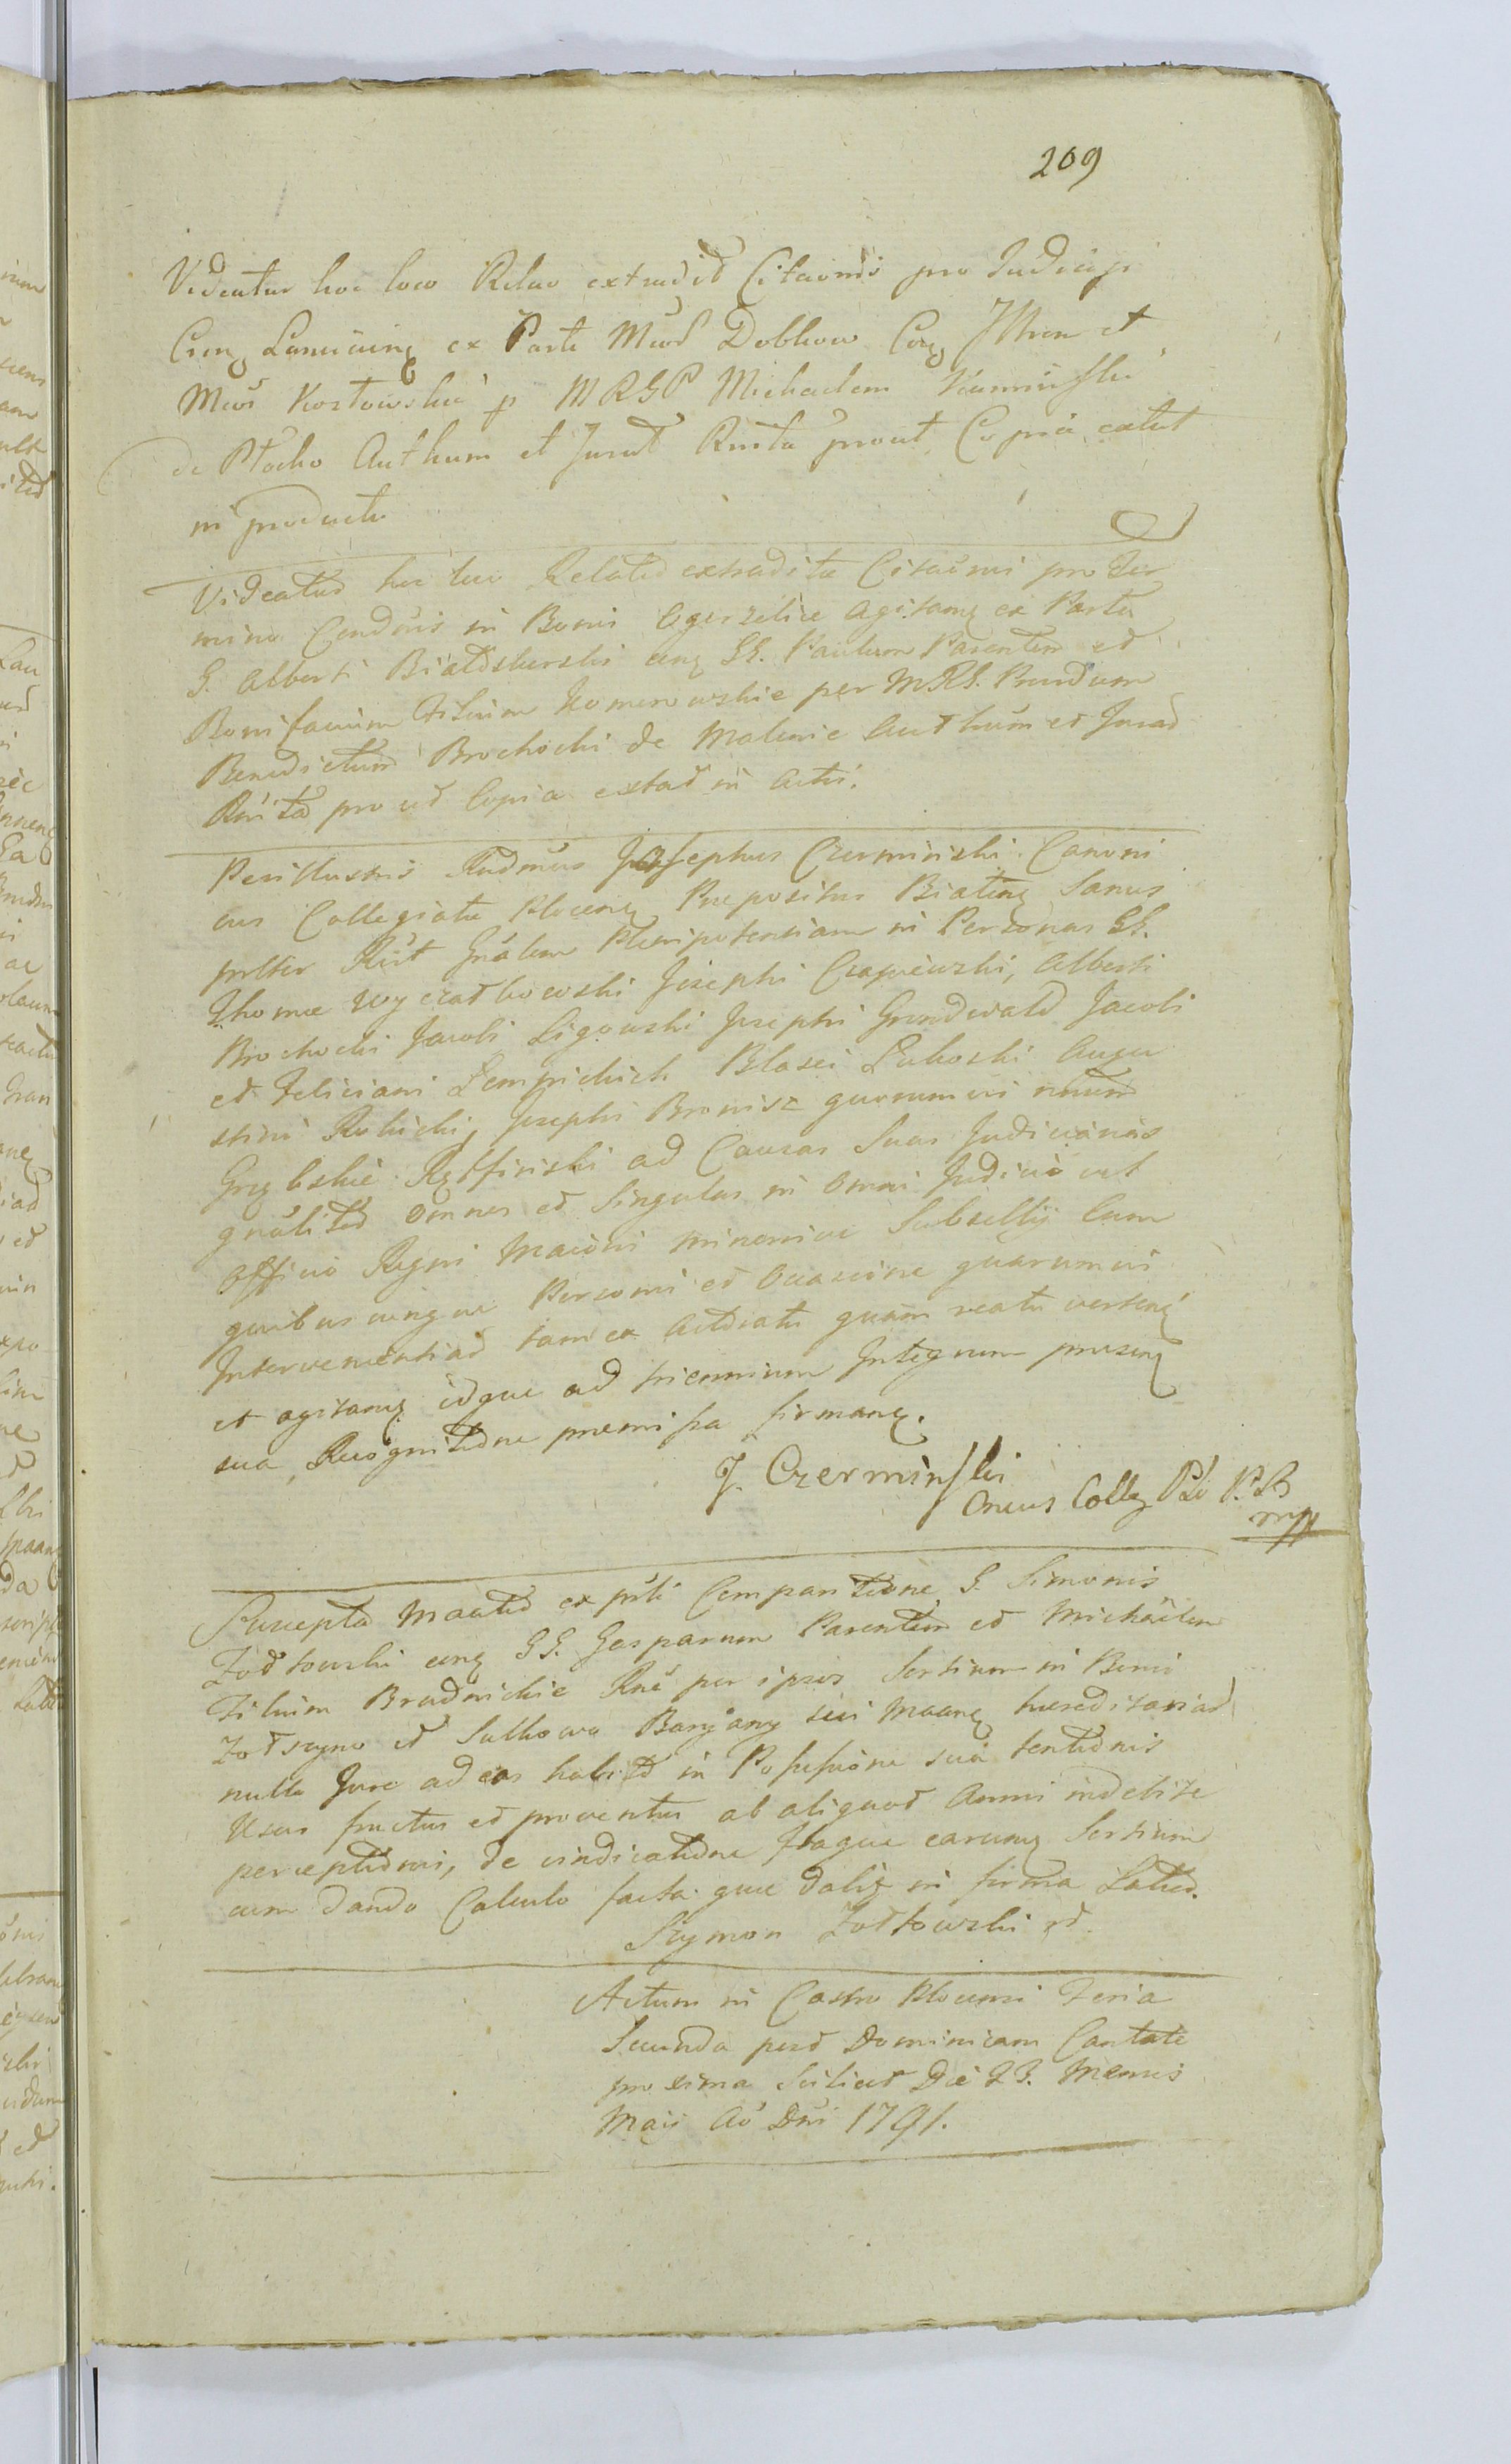 209
Videatur hoc loco Relao extradit Citaonis pro Judicijs
Cren Lanicien ex Parte Mcor Dobkow Con Ithron et
Mcos Kostowskie p MRGP Michaelem Kaminski
de Plocko Authum et Jurat Rnita prout Copia extat
in producto
Videatur hoc loco Relatio extradite Citaonis pro Ter
mino Condnis in Bonis Ogorzelice agitan ex Parte
G. Alberti Białoskurski cun GG. Paulum Parentem et
Bonifacium Filium Komorowskie per MRG. Prundum
Benedictum Brochocki de Malenie Authum et Jurat
Rnita prout Copia extat in Actis.
Perillustris Rudmus Josephus Czerminski Canoni
cus Collegiate Plocen Prepositus Białen Sanus
pnliter Rnit Gnalem Plenipotentiam in Personas GG.
Thomæ Wyczałkowski Josephi Czapiewski, Alberti
Brochocki Jacobi Ligowski Josephi Grundwald Jacobi
et Feliciani Lempickich Blasei Lukoski Augu
stini Rokicki, Josephi Bronisz quorumvis
Grębskie Rętfinski ad Causas suas Judiciarias
gnaliter omnes et singulas in omni Judicio vel
Officio Regni Maioris minorisve Subsellij Cum
quibuscunque Personis et Occasione quarumvis
Intervenientiar tam ex Actoratu quam reatu verten
et agitan idque ad triennium Integrum presen
sua Recognitione premissa firman.
J. Czerminski
Cnicus Colleg Plo P. B
mpp
Suscepta Maatio ex pnti Comparitione G. Simonis
Zołtowski cun GG. Gasparum Parentem et Michaelem
Filium Brudnickie Rne per ipsos Sortium in Bonis
Zołszyno et Sulkowo Barjany sui Maan hereditariar
nullo Jure ad eas habito in Possessione sua tentionis
Usus fructus et proventus ab aliquot Annis indebite
perceptionis, de vindicatione Itaque earum Sortium
cum dando Calculo facta que daliz in firma Latior.
Szymon Zołtowski
Actum in Castro Plocensi Feria
Secunda post Dominicam Cantate
proxima Scilicet Die 23. Mensis
Maij Ao Dni 1791.